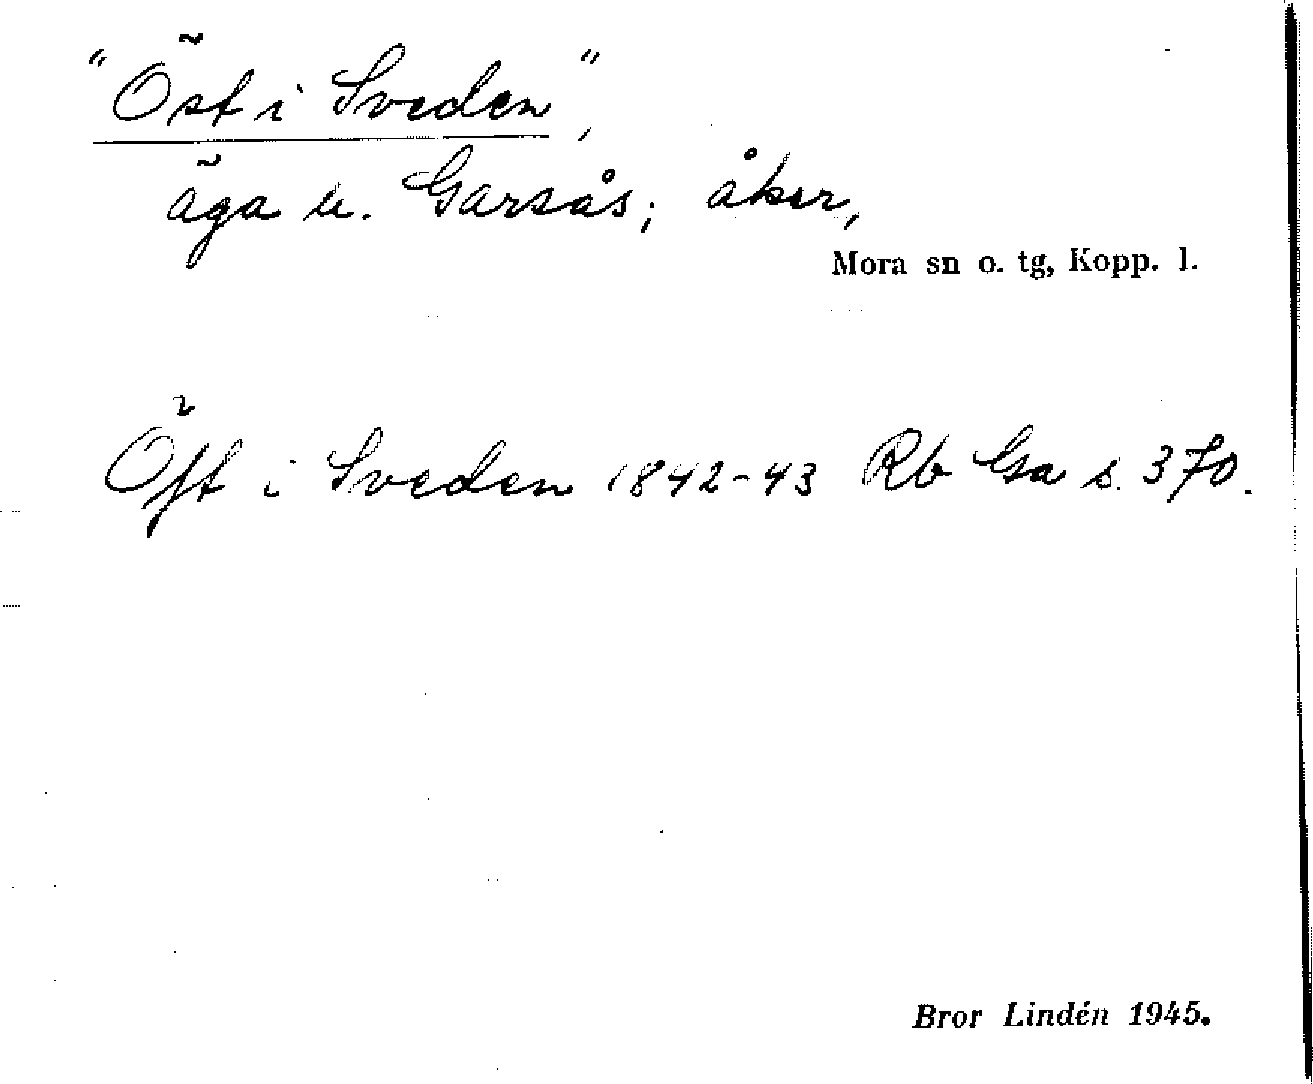 "Öst i Sveden",
äga u. Garsås; åker,
Mora sn o. tg, Kopp. l.
Öſt i Sveden 1842-43 Rb Gsa s. 370.
Bror Lindén 1945.